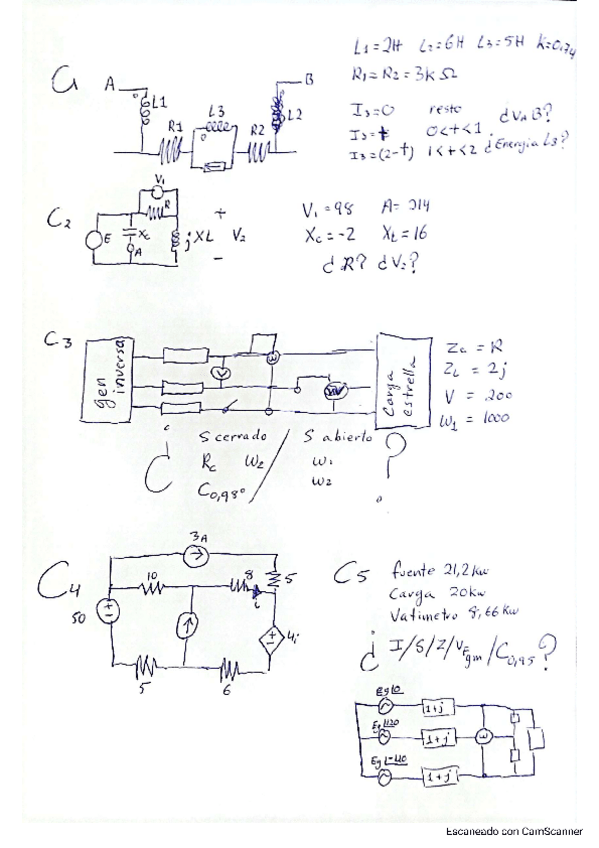 L1=2H L2=6H L3=5H K=0,74
R1=R2=3kΩ
C1 A B
L1 L3 L2
R1 R2
I3=0 resto ¿VAB?
I3=t 0<t<1
I3=(2-t) 1<t<2 ¿Energía L3?
C2 V1
R
E Xc jXL + V2 -
A
V1=98 A=214
Xc=-2 XL=16
¿R? ¿V2?
C3
gen inversa
V
W
Carga estrella
Zc=R
ZL=2j
V=200
W1=1000
¿ S cerrado / S abierto ?
Rc W2 W1
C0,98 W2
C4
3A
10 8 5
i
50 4i
5 6
C5 fuente 21,2kw
Carga 20kw
Vatimetro 8,66kw
¿I/S/Z/VEgm/C0,95?
Eg|0 1+j
Eg|120 1+j W
Eg|-120 1+j
Escaneado con CamScanner